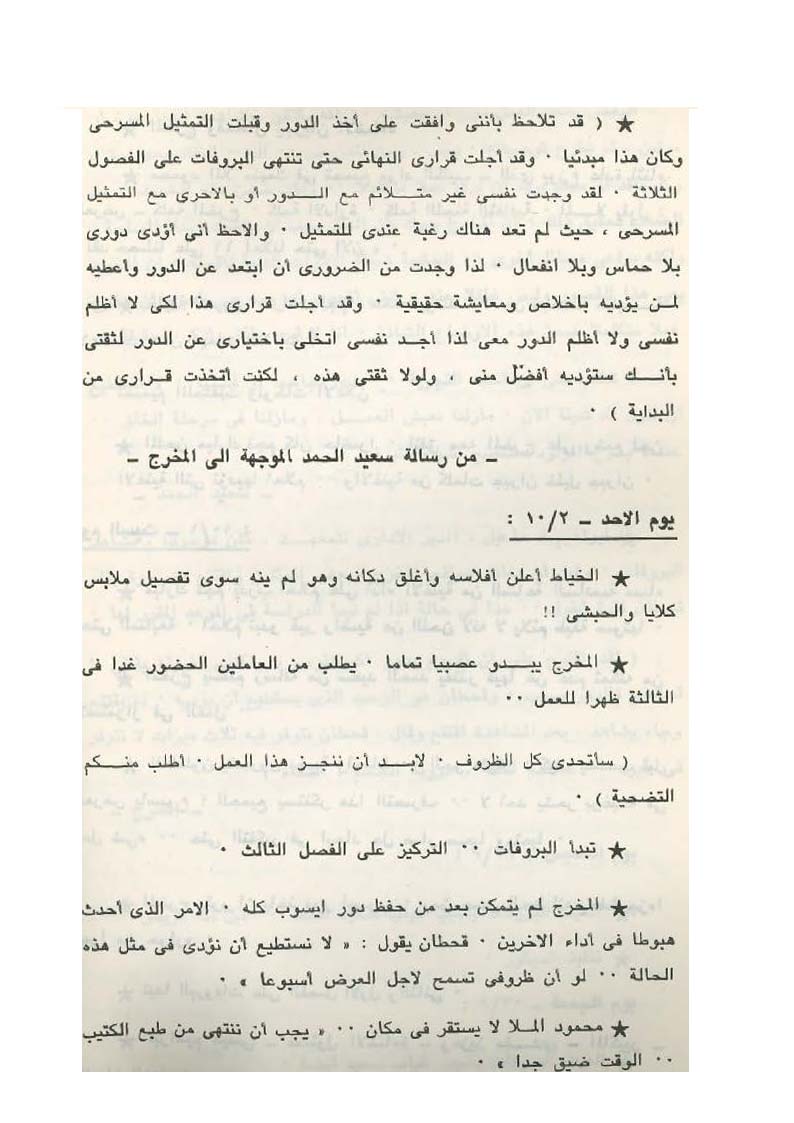 ★ ( قد تلاحظ بأننى وافقت على أخذ الدور وقبلت التمثيل المسرحى
وكان هذا مبدئيا ٠ وقد أجلت قرارى النهائى حتى تنتهى البروفات على الفصول
الثلاثة ٠ لقد وجدت نفسى غير متلائم مع الدور أو بالاحرى مع التمثيل
المسرحى ، حيث لم تعد هناك رغبة عندى للتمثيل ٠ والاحظ أنى أؤدى دورى
بلا حماس وبلا انفعال ٠ لذا وجدت من الضرورى أن ابتعد عن الدور وأعطيه
لمن يؤديه باخلاص ومعايشة حقيقية ٠ وقد أجلت قرارى هذا لكى لا أظلم
نفسى ولا أظلم الدور معى لذا أجد نفسى اتخلى باختيارى عن الدور لثقتى
بأنك ستؤديه أفضل منى ، ولولا ثقتى هذه ، لكنت أتخذت قرارى من
البداية ) ٠
ـ من رسالة سعيد الحمد الموجهة الى المخرج ـ
يوم الاحد ـ ١٠/٢ :
★ الخياط أعلن أفلاسه وأغلق دكانه وهو لم ينه سوى تفصيل ملابس
كلايا والحبشى !!
★ المخرج يبدو عصبيا تماما ٠ يطلب من العاملين الحضور غدا فى
الثالثة ظهرا للعمل ٠٠
( سأتحدى كل الظروف ٠ لابد أن ننجز هذا العمل ٠ أطلب منكم
التضحية ) ٠
★ تبدأ البروفات ٠٠ التركيز على الفصل الثالث ٠
★ المخرج لم يتمكن بعد من حفظ دور ايسوب كله ٠ الامر الذى أحدث
هبوطا فى أداء الاخرين ٠ قحطان يقول : « لا نستطيع أن نؤدى فى مثل هذه
الحالة ٠٠ لو أن ظروفى تسمح لاجل العرض أسبوعا » ٠
★ محمود الملا لا يستقر فى مكان ٠٠ « يجب أن ننتهى من طبع الكتيب
٠٠ الوقت ضيق جدا » ٠